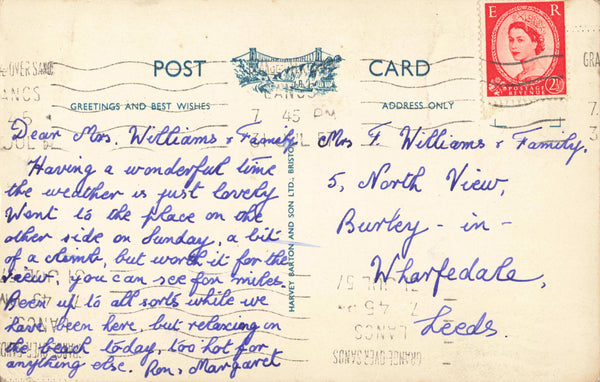 POST CARD
GREETINGS AND BEST WISHES
ADDRESS ONLY
E R
POSTAGE
REVENUE
2½
GRANGE-OVER-SANDS
LANCS
7. 45 PM
31 JUL 57
Dear Mrs. Williams & Family,
Having a wonderful time
the weather is just lovely
Went to the place on the
other side on Sunday, a bit
of a climb, but worth it for the
view, you can see for miles.
Been up to all sorts while we
have been here, but relaxing on
the beach today, too hot for
anything else. Ron, Margaret
HARVEY BARTON AND SON LTD., BRISTOL
Mrs F. Williams & Family.
5, North View,
Burley - in -
Wharfedale,
Leeds.
JUL 57
7. 45
LANCS
GRANGE-OVER-SANDS